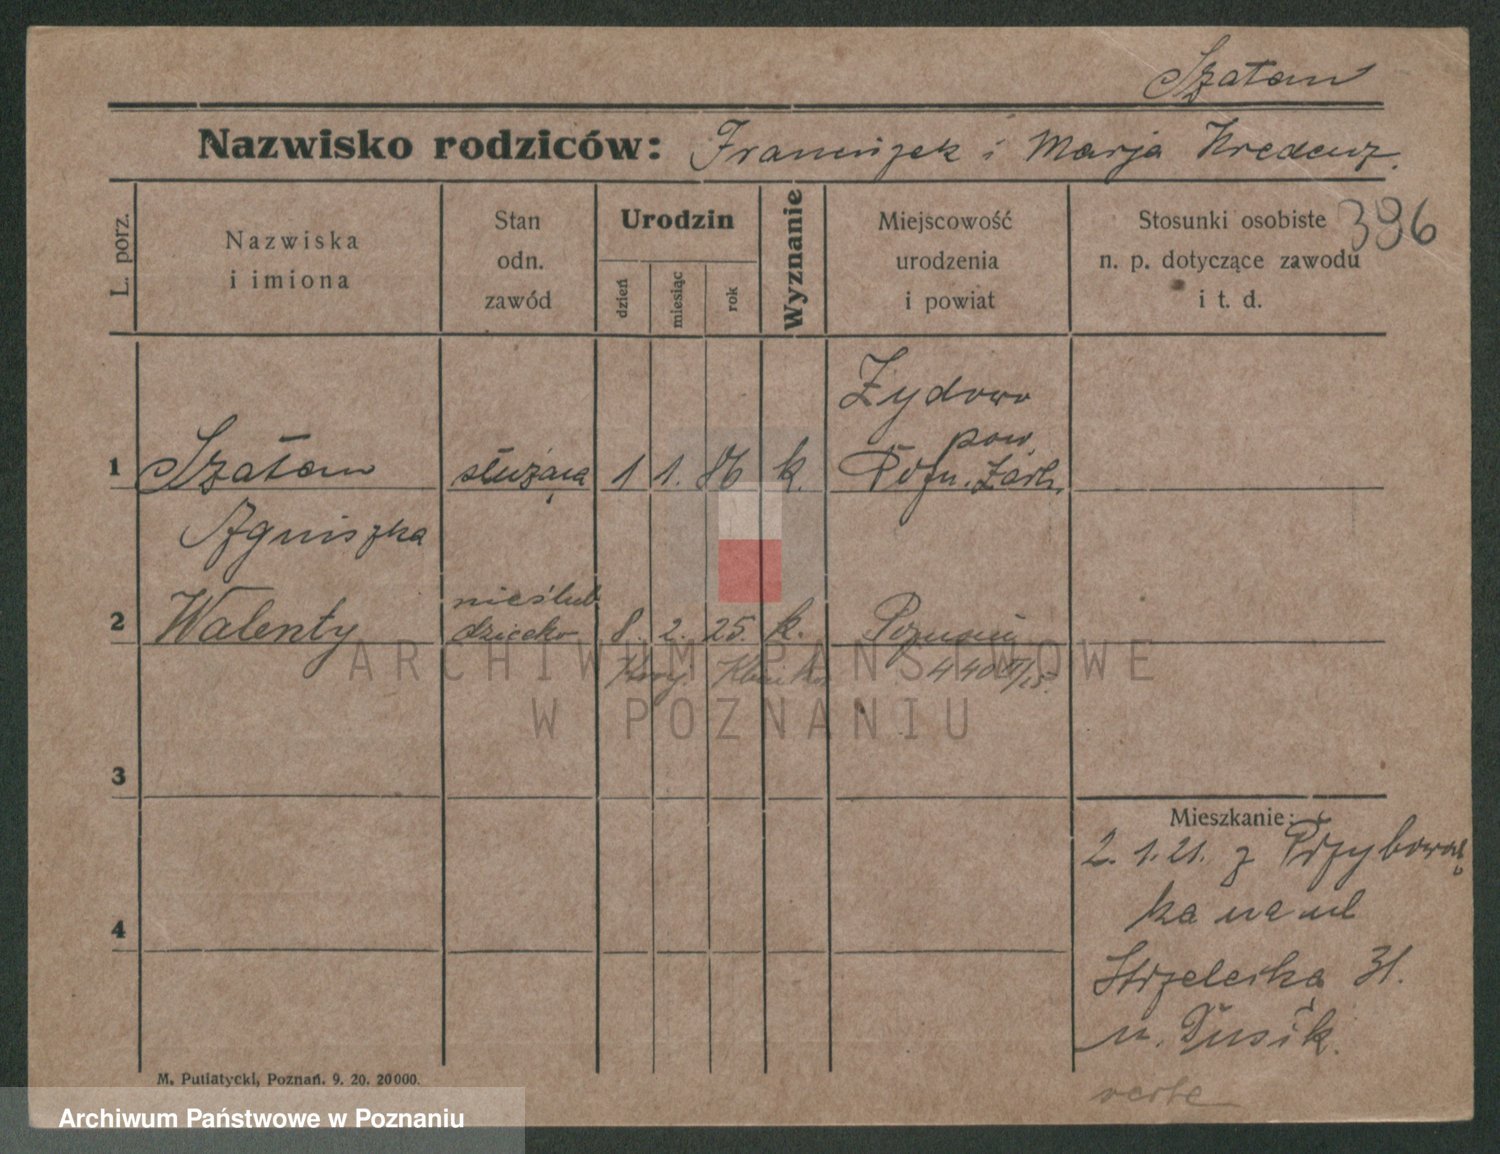 Szatan
Nazwisko rodziców: Franciszek i Marja Kredenz.
396
L. porz.
Nazwiska
i imiona
Stan
odn.
zawód
Urodzin
dzień
miesiąc
rok
Wyznanie
Miejscowość
urodzenia
i powiat
Stosunki osobiste
n. p. dotyczące zawodu
i t. d.
Żydowo
pow.
1 Szatan służąca 1 1. 86 k. Pozn. Zach.
Agniszka
nieślub
2 Walenty dziecko 8. 2. 25. k. Poznaniu
ARCHIWUM PAŃSTWOWE
W POZNANIU
3
Mieszkanie:
2. 1. 21. z Przyborow
ka na ul
4
Strzelecką 31.
u. Dusik.
M. Putiatycki, Poznań. 9. 20. 20000.
verte
Archiwum Państwowe w Poznaniu